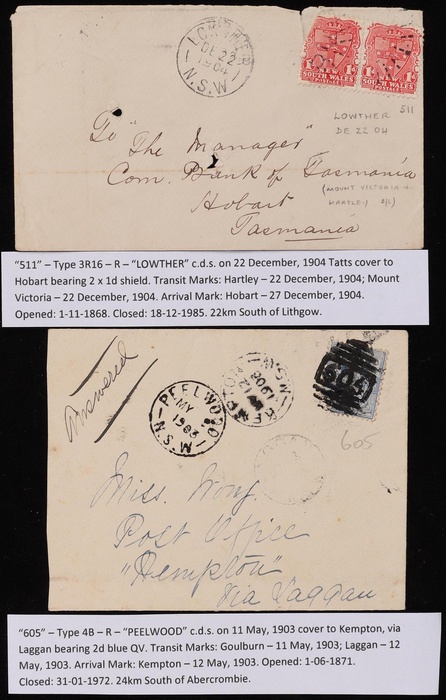 LOWTHER
DE 22
1904
N.S.W
1d 1d
SOUTH WALES SOUTH WALES
POSTAGE POSTAGE
511
LOWTHER
DE 22 04
To "The Manager"
Com. Bank of Tasmania
(MOUNT VICTORIA &
HARTLEY) B/S
Hobart
Tasmania
"511" – Type 3R16 – R – "LOWTHER" c.d.s. on 22 December, 1904 Tatts cover to
Hobart bearing 2 x 1d shield. Transit Marks: Hartley – 22 December, 1904; Mount
Victoria – 22 December, 1904. Arrival Mark: Hobart – 27 December, 1904.
Opened: 1-11-1868. Closed: 18-12-1985. 22km South of Lithgow.
Answered
PEELWOOD
MY
1903
N.S.W
605
Miss. Wong.
Post Office
"Kempton"
Via Laggan
"605" – Type 4B – R – "PEELWOOD" c.d.s. on 11 May, 1903 cover to Kempton, via
Laggan bearing 2d blue QV. Transit Marks: Goulburn – 11 May, 1903; Laggan – 12
May, 1903. Arrival Mark: Kempton – 12 May, 1903. Opened: 1-06-1871.
Closed: 31-01-1972. 24km South of Abercrombie.